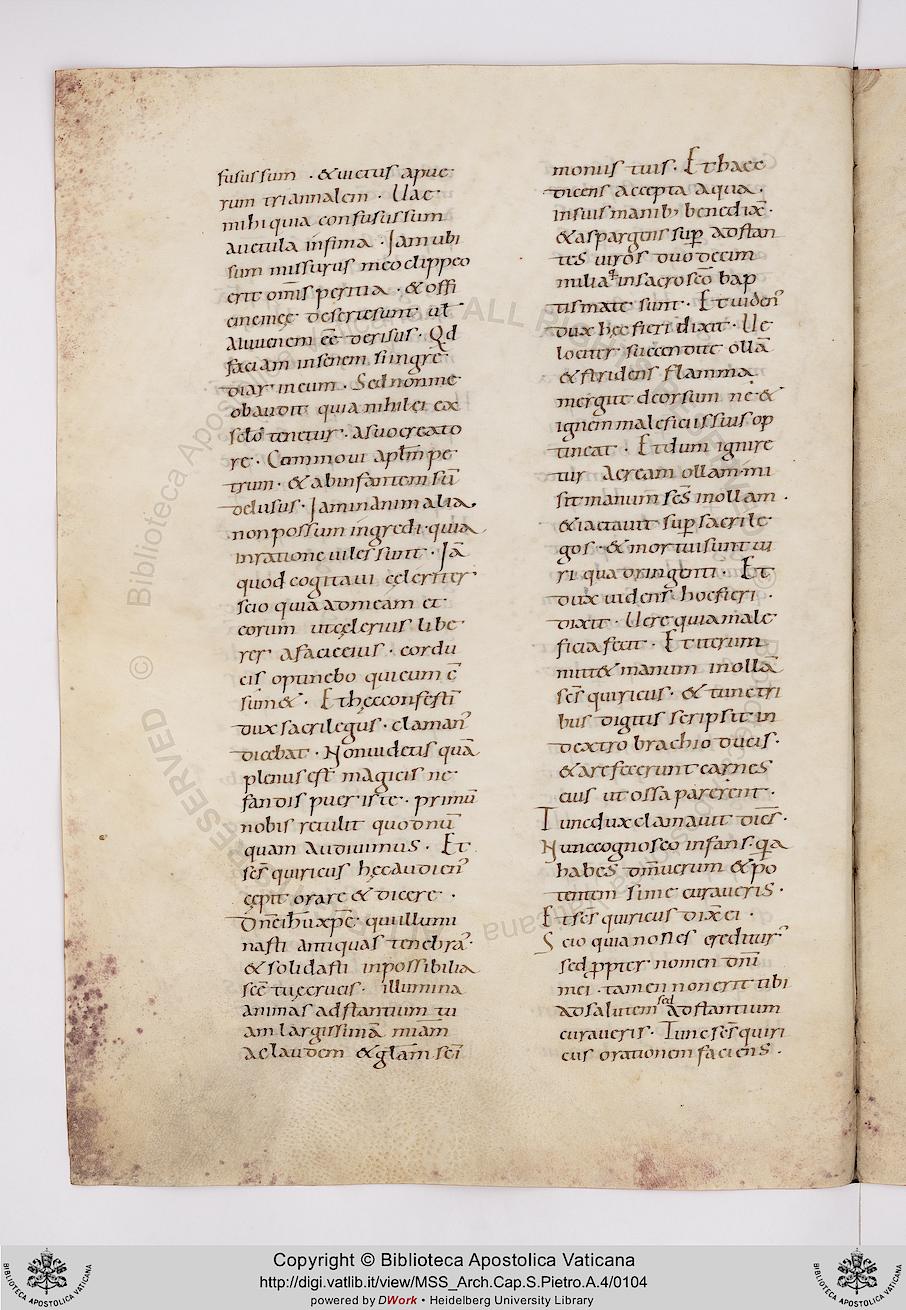 fusus sum · & uictus a pue·
rum triannalem · Uae·
mihi quia confusus sum
a uetula infima · Iam ubi
sum missurus meo clippeo
erit om̄is peritia · & offi
cine meę desertę sunt ut̄
a iuuenem eē̄ derisus · Qd
faciam in senem si ingre
diar in eum · Sed non me
obaudit quia nihil ei ex
sclō tenetur · a suo creato
re · Commoui apłm pe
trum · & ab infantem sū
delusus · Iam in animalia·
non possum ingredi · quia
in ratione uiles sunt · Iā
quod cogitaui celeriter
scio quia ad meam et
eorum ut celerius libe
rer a facię eius · cordu
cis opunebo qui cum ē
sum & · Et hęc confestī
dux sacrilegus · clamanˀ
dicebat · Non uidetis quā
plenus est̄ magicis ne
fandis puer iste · primū
nobis retulit quod nū
quam audiuimus · Et
sc̄s quiricus hęc audienˀ
cępit orare & dicere ·
Dn̄e ih̄u xp̄e qui illumi
nasti antiquas tenebraˀ·
& solidasti inpossibilia
sc̄ę tuę crucis · illumina
animas adstantium tu
am largissimā miam̄
ac laudem & glam̄ sc̄i
moniis tuis · Et haec
dicens accepta aqua ·
in suis manib; benedix̄ ·
& aspargens sup̱ adstan
tes uiros duodecim
milia q̄ in sacro sc̄o bap
tismate sunt · Et uidenˀ
dux hęc fieri dixit · Ue
lociter succendite ollā
& stridens flamma
mergat deorsum ne &
ignem maleficiis suis op
tineat · Et dum ignire
tur aeream ollam mi
sit manum sc̄s in ollam ·
& iactauit sup̱ sacrile
gos · & mortui sunt ui
ri quadringenti · Et
dux uidens hoc fieri ·
dixit · Uere quia male
ficia fecit · Et iterum
mitt& manum in ollā
sc̄s quiricus · & tunc tri
bus digitis scripsit in
dextro brachio ducis ·
& arefecerunt carnes
eius ut ossa parerent ·
Tunc dux clamauit dicē̄s ·
Nunc cognosco infans · qa
habes dm̄ uerum & po
tentem si me curaueris ·
Et sc̄s quiricus dix̄ ei ·
Scio quia non es crediturˀ
sed p̱pter nomen dn̄i
mei · tamen non erit tibi
ad salutem sed adstantium
curaueris · Tunc sc̄s quiri
cus orationem faciens ·
Copyright © Biblioteca Apostolica Vaticana
http://digi.vatlib.it/view/MSS_Arch.Cap.S.Pietro.A.4/0104
powered by DWork • Heidelberg University Library